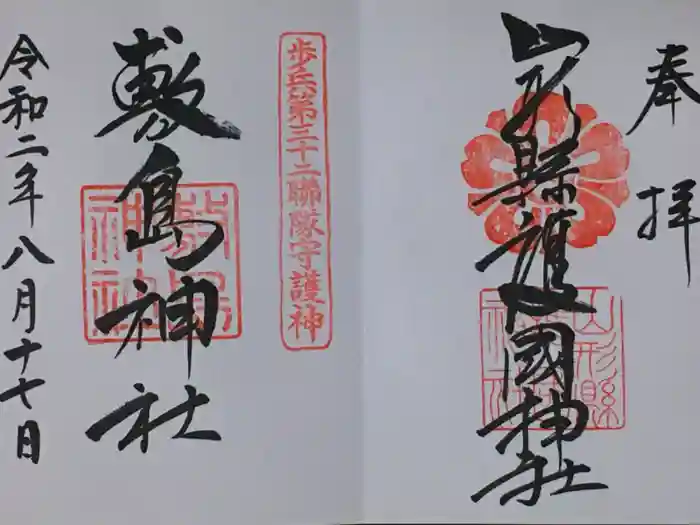 奉拝
山形縣護國神社
山形縣
歩兵第三十二聯隊守護神
敷島神社
敷島神社
令和二年八月十七日